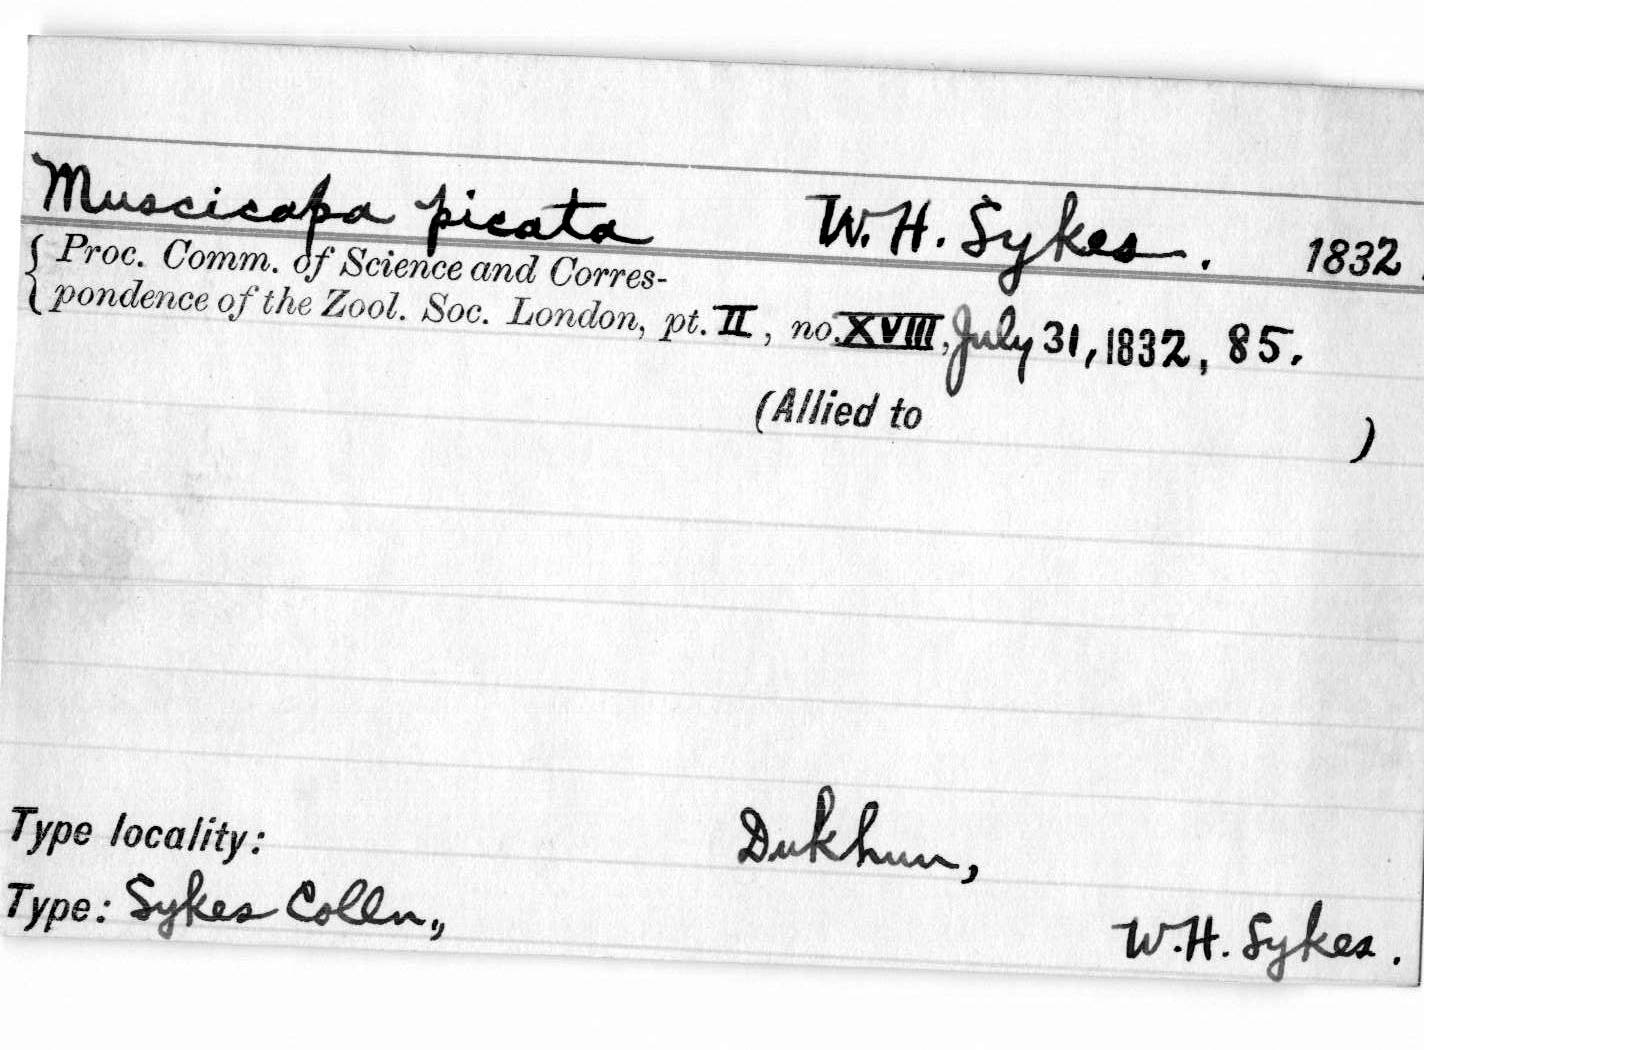 Muscicapa picata W. H. Sykes. 1832.
{ Proc. Comm. of Science and Corres-
{ pondence of the Zool. Soc. London, pt. II, no. XVIII, July 31, 1832, 85.
(Allied to )
Type locality: Dukhun,
Type: Sykes Colln.,
W. H. Sykes.